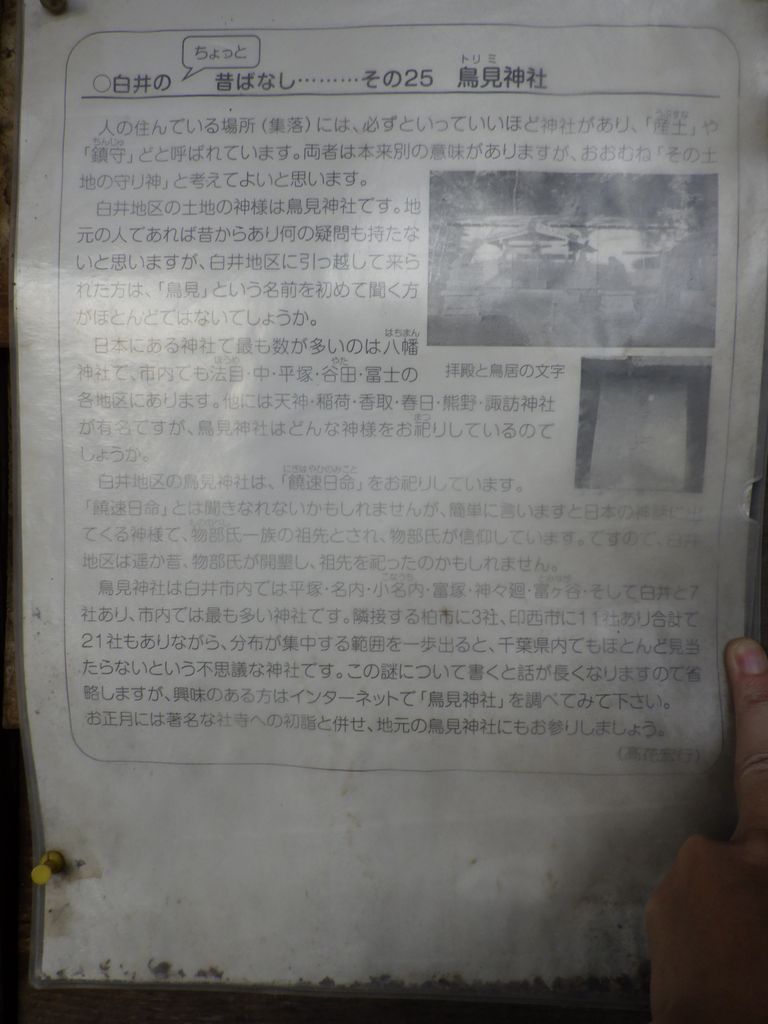 ちょっと
○白井の 昔ばなし………その25 鳥見神社
トリミ
人の住んでいる場所(集落)には、必ずといっていいほど神社があり、「産土」や
うぶすな
「鎮守」どと呼ばれています。両者は本来別の意味がありますが、おおむね「その土
ちんじゅ
地の守り神」と考えてよいと思います。
白井地区の土地の神様は鳥見神社です。地
元の人であれば昔からあり何の疑問も持たな
いと思いますが、白井地区に引っ越して来ら
れた方は、「鳥見」という名前を初めて聞く方
がほとんどではないでしょうか。
日本にある神社で最も数が多いのは八幡
はちまん
神社で、市内でも法目・中・平塚・谷田・冨士の
ほうめ
やた
各地区にあります。他には天神・稲荷・香取・春日・熊野・諏訪神社
が有名ですが、鳥見神社はどんな神様をお祀りしているので
まつ
しょうか。
拝殿と鳥居の文字
白井地区の鳥見神社は、「饒速日命」をお祀りしています。
にぎはやひのみこと
「饒速日命」とは聞きなれないかもしれませんが、簡単に言いますと日本の神話に出
てくる神様で、物部氏一族の祖先とされ、物部氏が信仰しています。ですので、白井
地区は遥か昔、物部氏が開墾し、祖先を祀ったのかもしれません。
鳥見神社は白井市内では平塚・名内・小名内・富塚・神々廻・富ヶ谷・そして白井と7
こなうち
社あり、市内では最も多い神社です。隣接する柏市に3社、印西市に11社あり合計で
21社もありながら、分布が集中する範囲を一歩出ると、千葉県内でもほとんど見当
たらないという不思議な神社です。この謎について書くと話が長くなりますので省
略しますが、興味のある方はインターネットで「鳥見神社」を調べてみて下さい。
お正月には著名な社寺への初詣と併せ、地元の鳥見神社にもお参りしましょう。
(高花宏行)